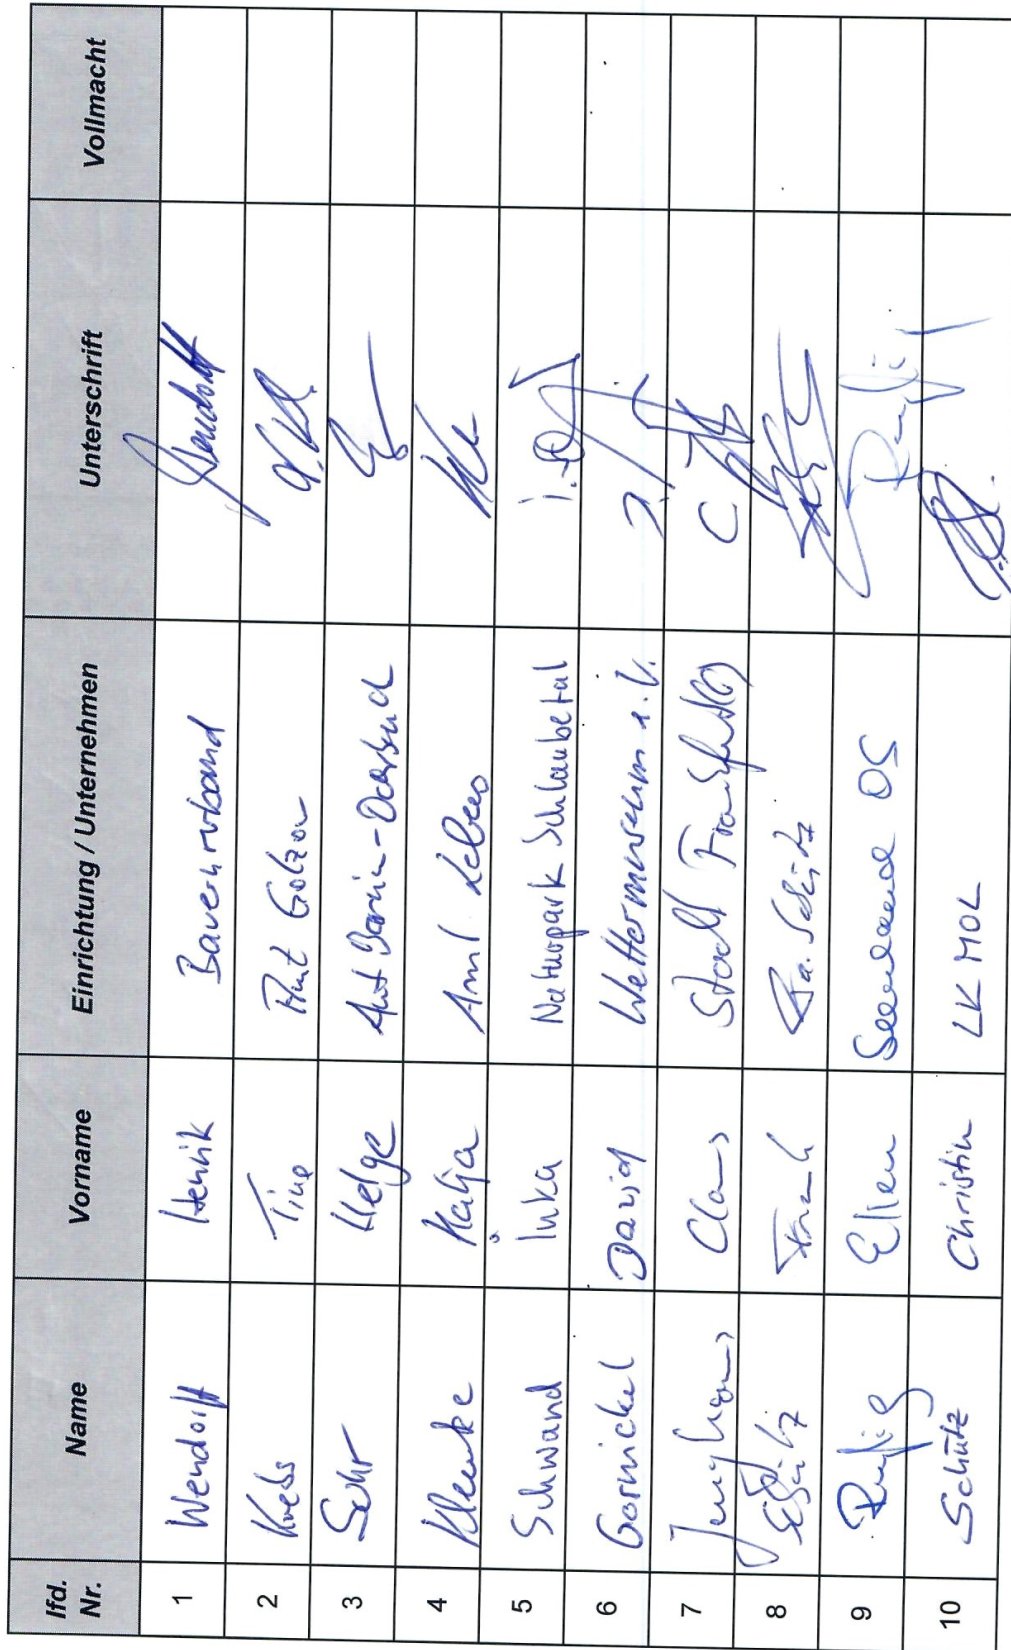 lfd. Nr. Name Vorname Einrichtung / Unternehmen Unterschrift Vollmacht
1 Wendorff Henrik Bauernverband Wendorff
2 Krebs Tine Amt Golzow
3 Sehr Helge Amt Barnim-Oderbruch
4 Klemke Katja Amt Lebus
5 Schwand Inka Naturpark Schlaubetal
6 Gornickel David Wettermuseum e.V.
7 Junghanns Claus Stadt Frankfurt (O)
8 Schütz Frank Fa. Schütz
9 Rußig Ellen Seenland OS
10 Schütz Christin LK MOL